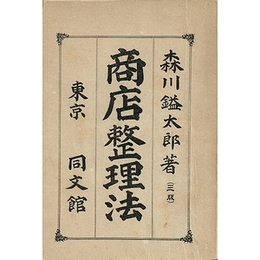 森川鎰太郎著（三版）
商店整理法
東京 同文館